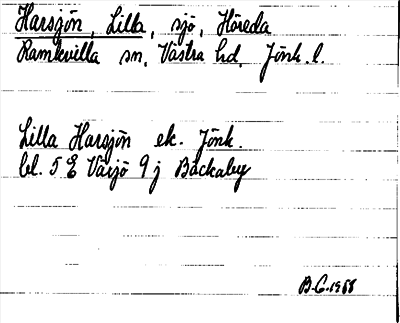 Harsjön, Lilla, sjö, Höreda
Ramkvilla sn, Västra hd, Jönk. l.
Lilla Harsjön ek. Jönk.
bl. 5 E Växjö 9 j Bäckaby
B.G. 1988